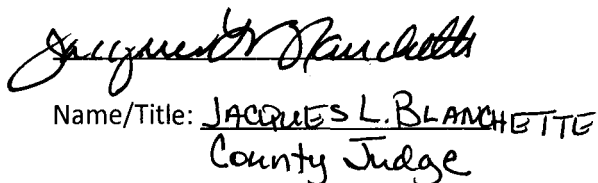 Jacques L Blanchette
Name/Title: JACQUES L. BLANCHETTE
County Judge